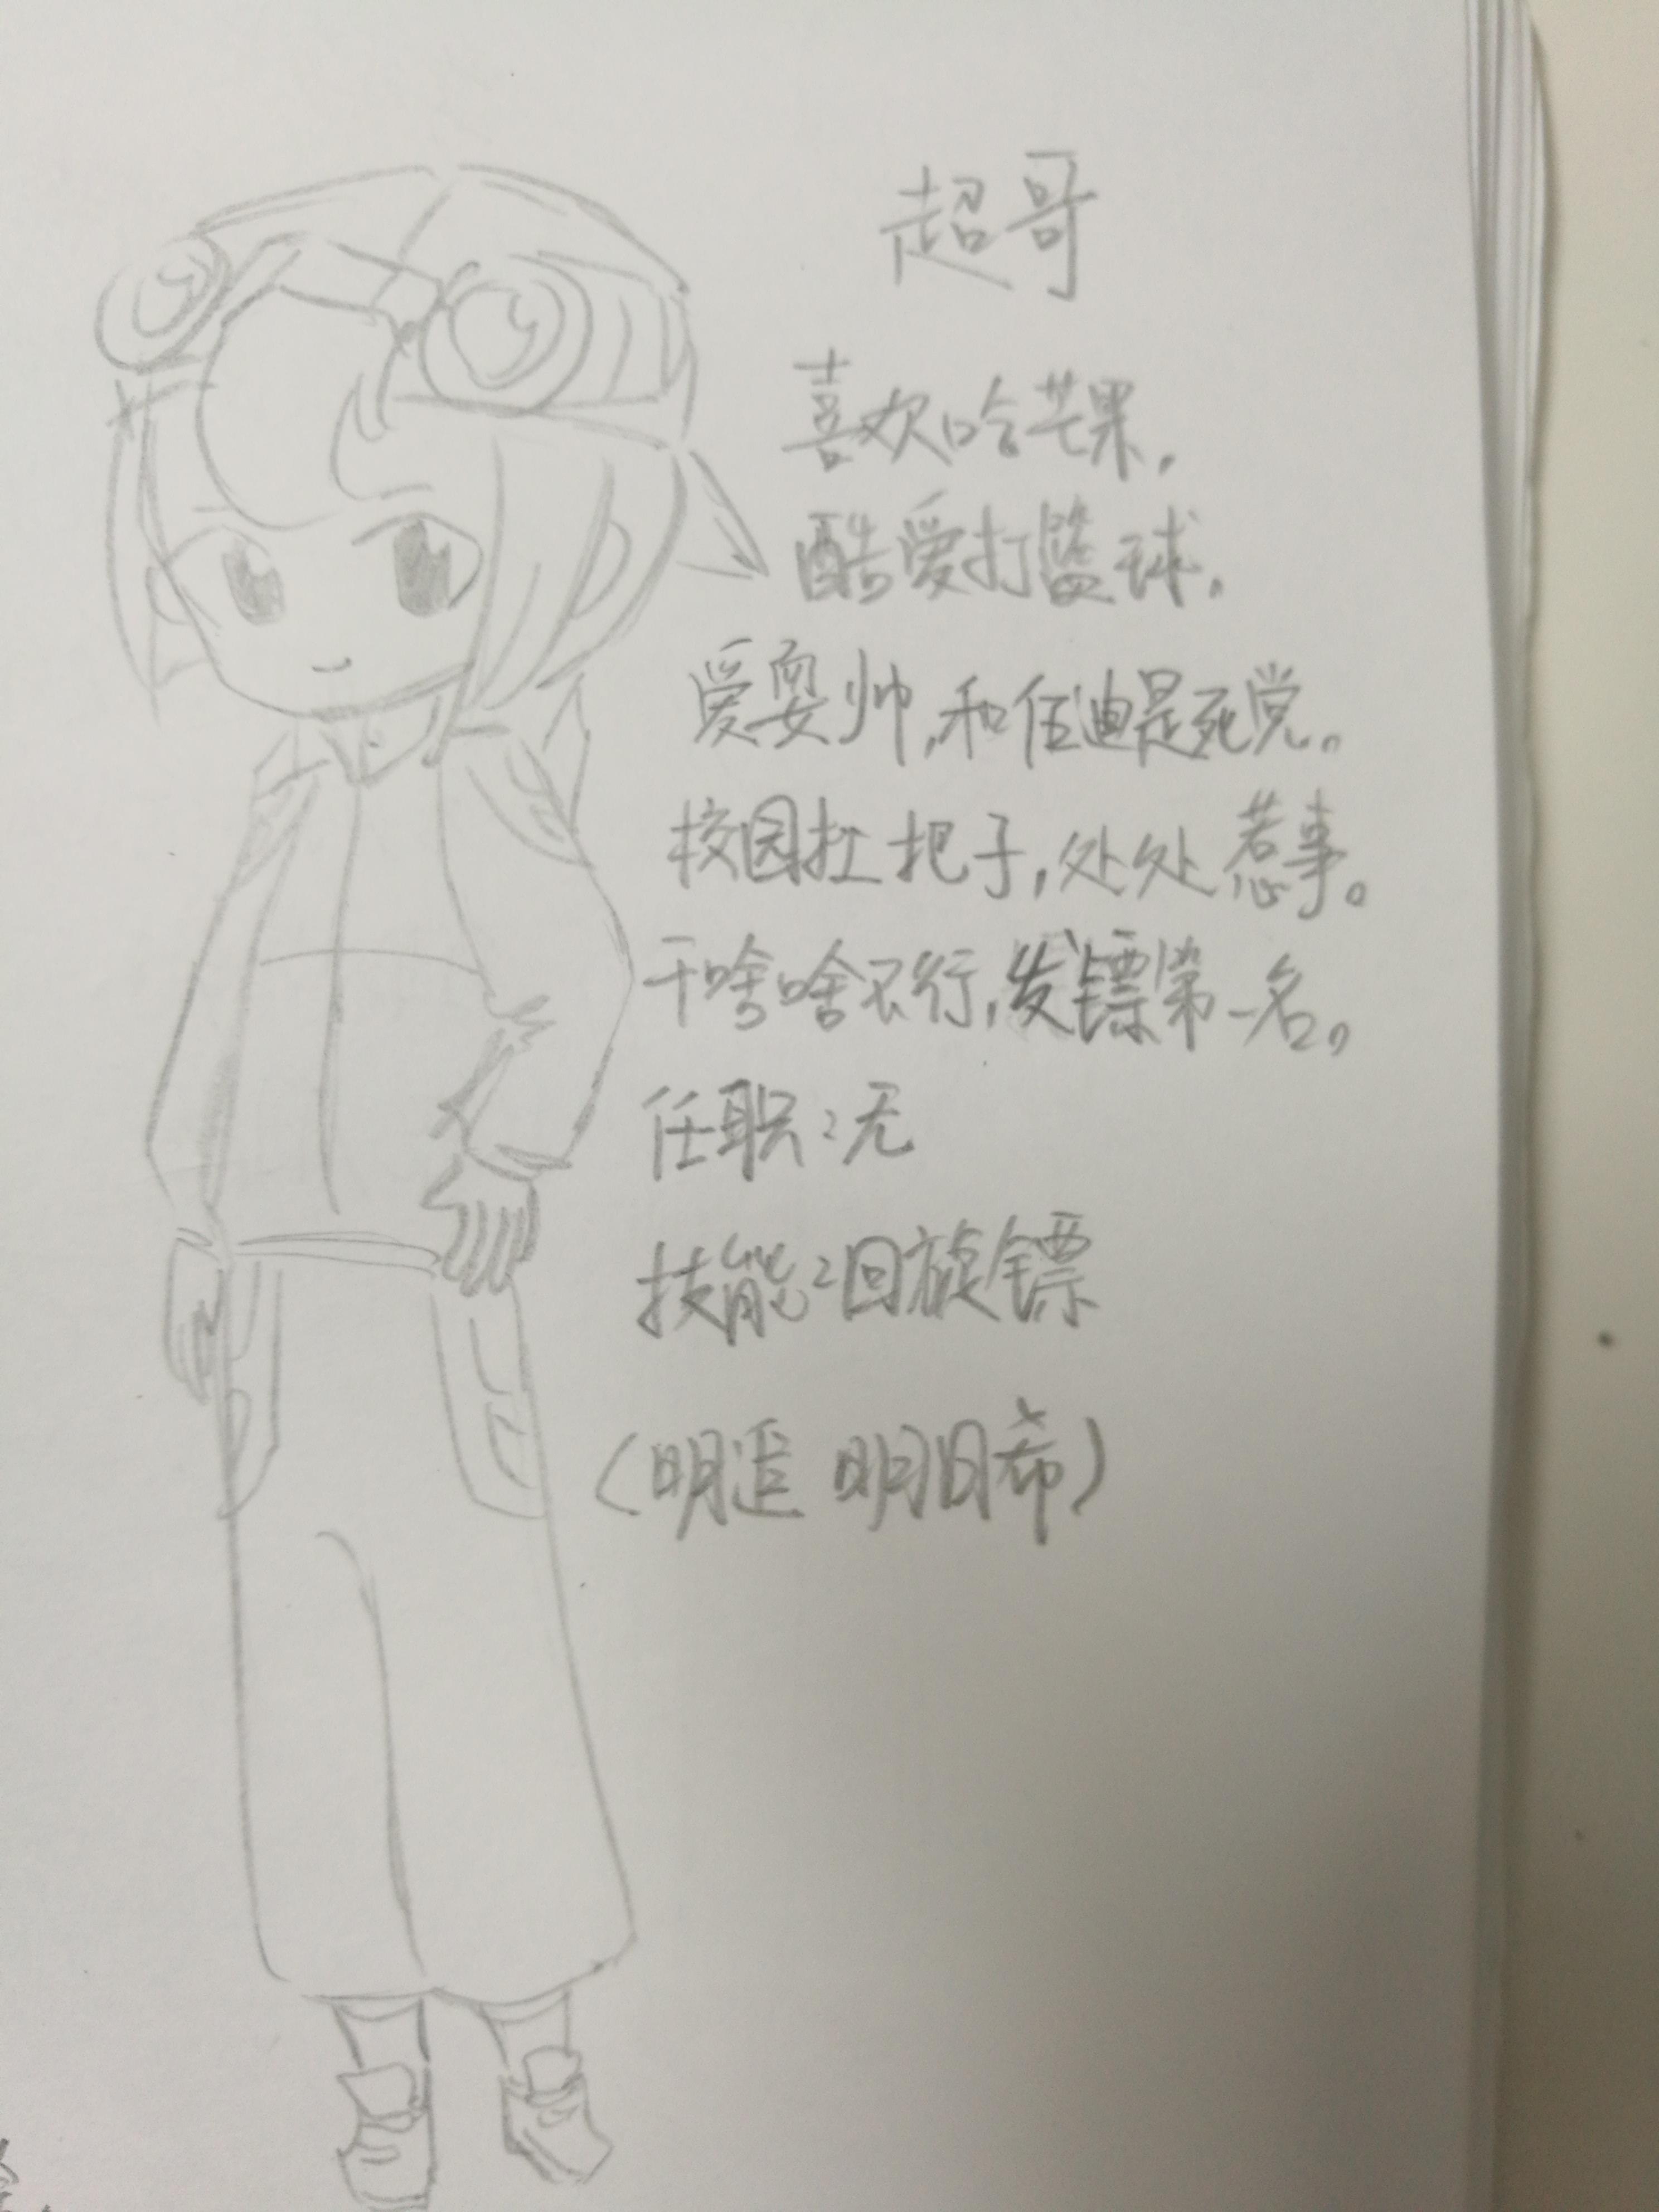 超哥
喜欢哈芒果，
酷爱打篮球，
爱耍帅，和任迪是死党。
校园扛把子，处处惹事。
干啥啥不行，发镖第一名。
任职：无
技能：回旋镖
（明追 明旧希）